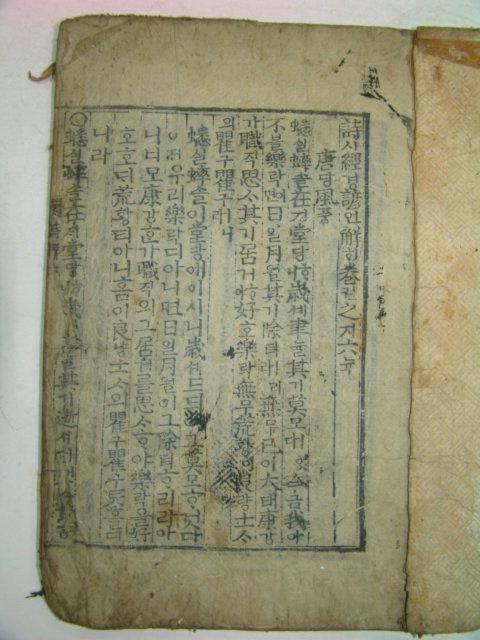 詩시經경諺언解ᄒᆡ卷권之지六뉵
唐당風풍
蟋실蟀솔在ᄌᆡ堂당ᄒᆞ니歲셰聿율其기莫모 今금我아
不블樂락이면日일月월其기除뎨 無무已이大태康강
가職직思ᄉᆞ其기居거ᄒᆞ야好호樂락無무荒황이良량士ᄉᆞ
의瞿구瞿구ㅣ니라
蟋실蟀솔이堂당애이시니歲셰드듸여그莫모ᄒᆞ엿다
이제우리樂락디아니면日일月월이그除뎨ᄒᆞ리라아
니너모康강ᄒᆞᆫ가職직의그居거를思ᄉᆞᄒᆞ야樂락을好
호호ᄃᆡ荒황티아니홈이良량士ᄉᆞ의瞿구瞿구
니라
○蟋실蟀솔在ᄌᆡ堂당ᄒᆞ니歲셰聿율其기逝셰 今금我아